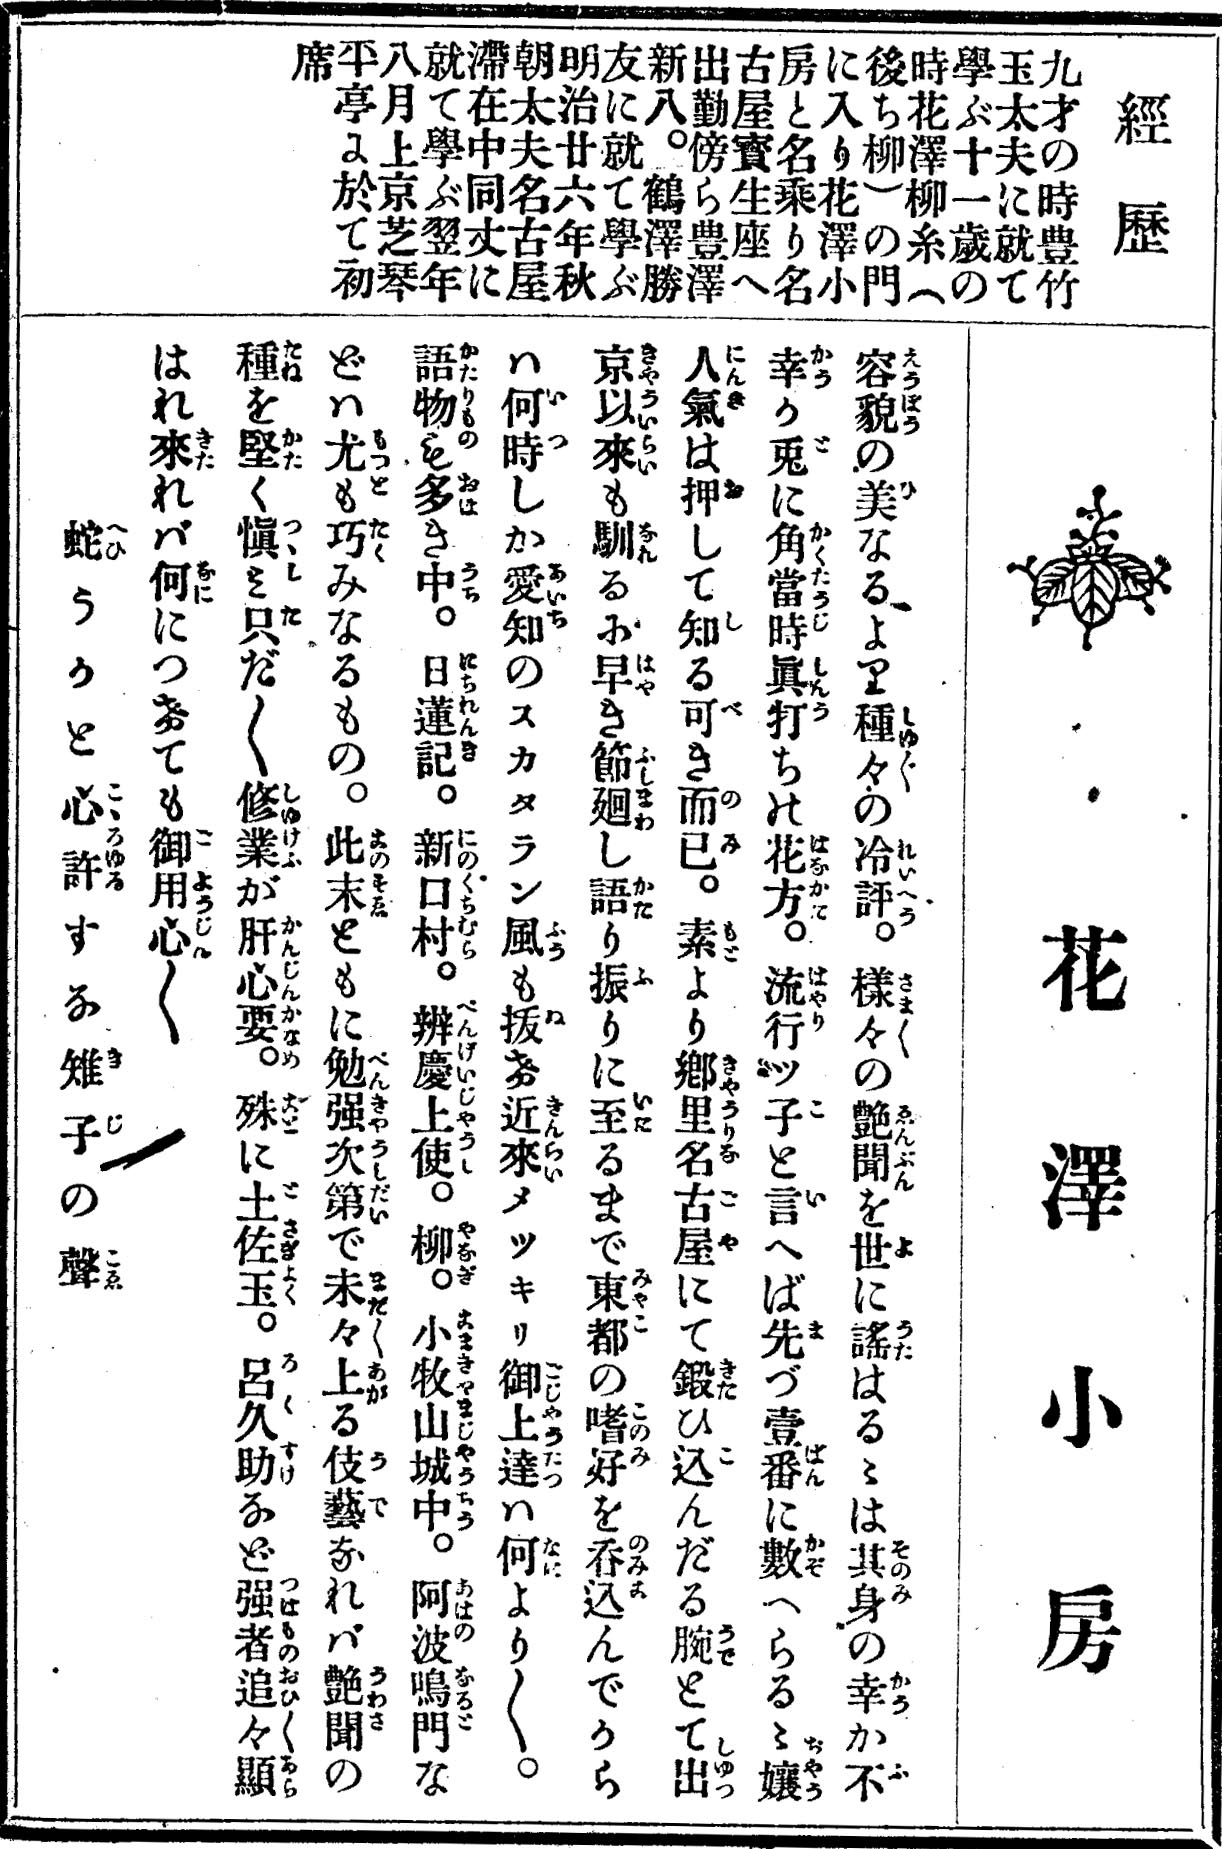 經歷
九才の時豊竹
玉太夫に就て
學ぶ十一歲の
時花澤柳糸（
後ち柳）の門
に入り花澤小
房と名乘り名
古屋寳生座へ
出勤傍ら豊澤
新八。鶴澤勝
友に就て學ぶ
明治廿六年秋
朝太夫名古屋
滯在中同丈に
就て學ぶ翌年
八月上京芝琴
平亭に於て初
席
花澤小房
容貌の美なるより種々の冷評。樣々の艶聞を世に謠はるゝは其身の幸か不
幸か兎に角當時眞打ちの花方。流行ッ子と言へば先づ壹番に數へらるゝ孃
人氣は押して知る可き而已。素より鄕里名古屋にて鍛ひ込んだる腕とて出
京以來も馴るゝ早き節廻し語り振りに至るまで東都の嗜好を呑込んでから
ハ何時しか愛知のスカタラン風も拔け近來メツキリ御上達ハ何より〱。
語物も多き中。日蓮記。新口村。辨慶上使。柳。小牧山城中。阿波鳴門な
どハ尤も巧みなるもの。此末ともに勉强次第で未々上る伎藝なれバ艶聞の
種を堅く愼み只だ〱修業が肝心要。殊に土佐玉。呂久助など强者追々顯
はれ來れバ何につけても御用心〱
蛇うかと心許するな雉子の聲